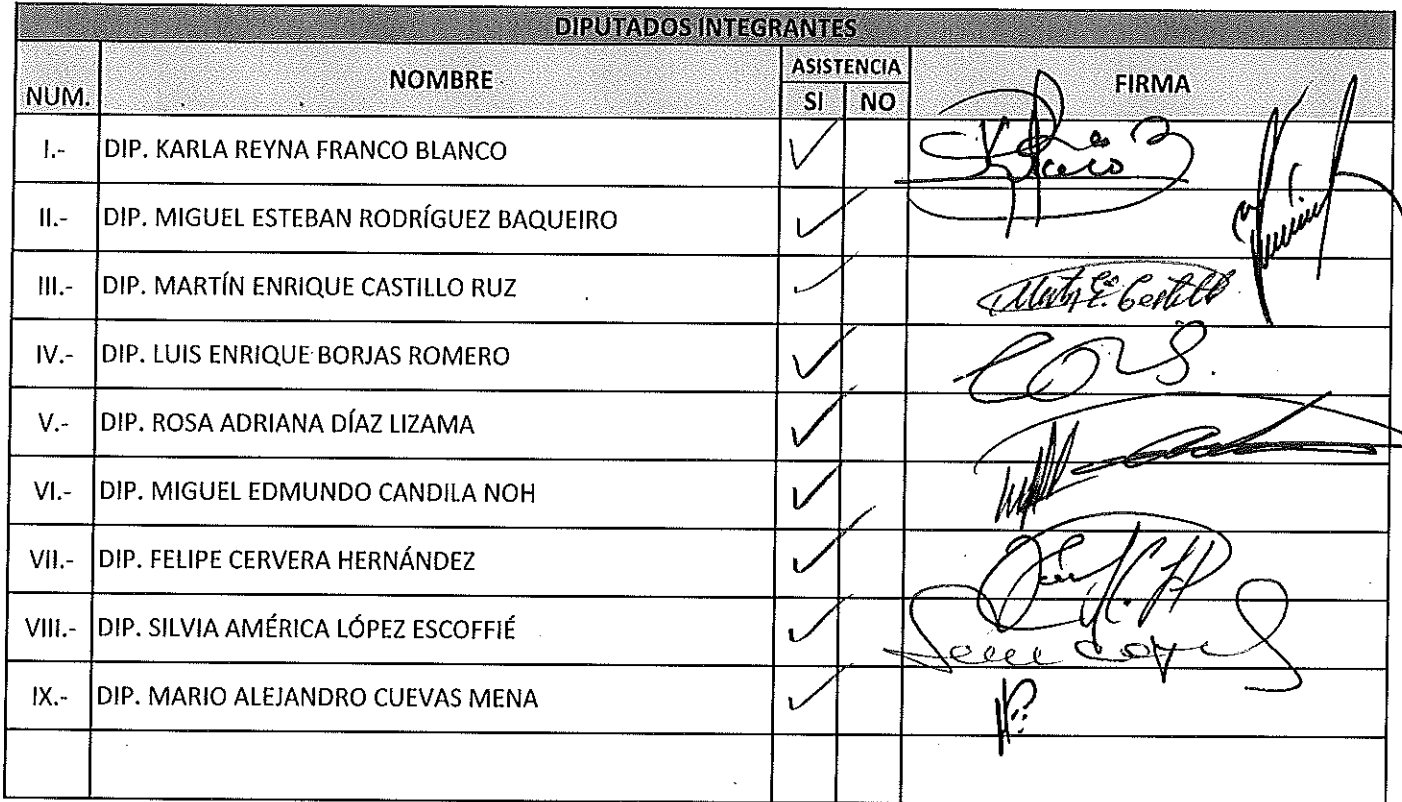 DIPUTADOS INTEGRANTES
NUM. NOMBRE ASISTENCIA FIRMA
SI NO
I.- DIP. KARLA REYNA FRANCO BLANCO
II.- DIP. MIGUEL ESTEBAN RODRÍGUEZ BAQUEIRO
III.- DIP. MARTÍN ENRIQUE CASTILLO RUZ
IV.- DIP. LUIS ENRIQUE BORJAS ROMERO
V.- DIP. ROSA ADRIANA DÍAZ LIZAMA
VI.- DIP. MIGUEL EDMUNDO CANDILA NOH
VII.- DIP. FELIPE CERVERA HERNÁNDEZ
VIII.- DIP. SILVIA AMÉRICA LÓPEZ ESCOFFIÉ
IX.- DIP. MARIO ALEJANDRO CUEVAS MENA